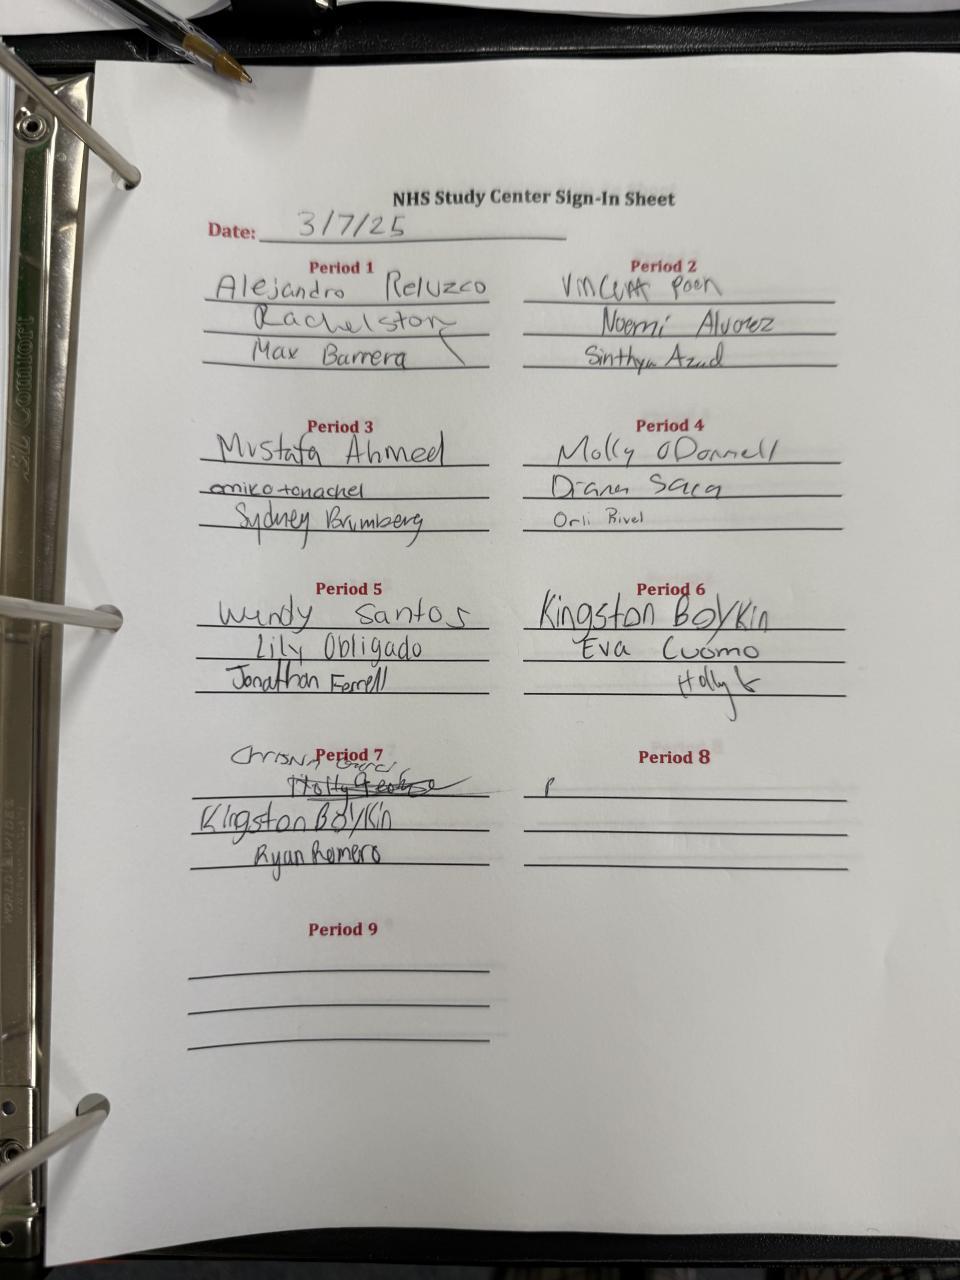 NHS Study Center Sign-In Sheet
Date: 3/7/25
Period 1
Alejandro Reluzco
Rachel ston
Max Barrera
Period 2
Vincent Poon
Noemi Alvarez
Sinthya Azad
Period 3
Mustafa Ahmed
omiko tonachel
Sydney Brumberg
Period 4
Molly ODonnell
Diana Saca
Orli Rivel
Period 5
Wendy Santos
Lily Obligado
Jonathan Ferrell
Period 6
Kingston Boykin
Eva Cuomo
Holly G
Period 7
Holly George
Kingston Boykin
Ryan Romero
Period 8
Period 9